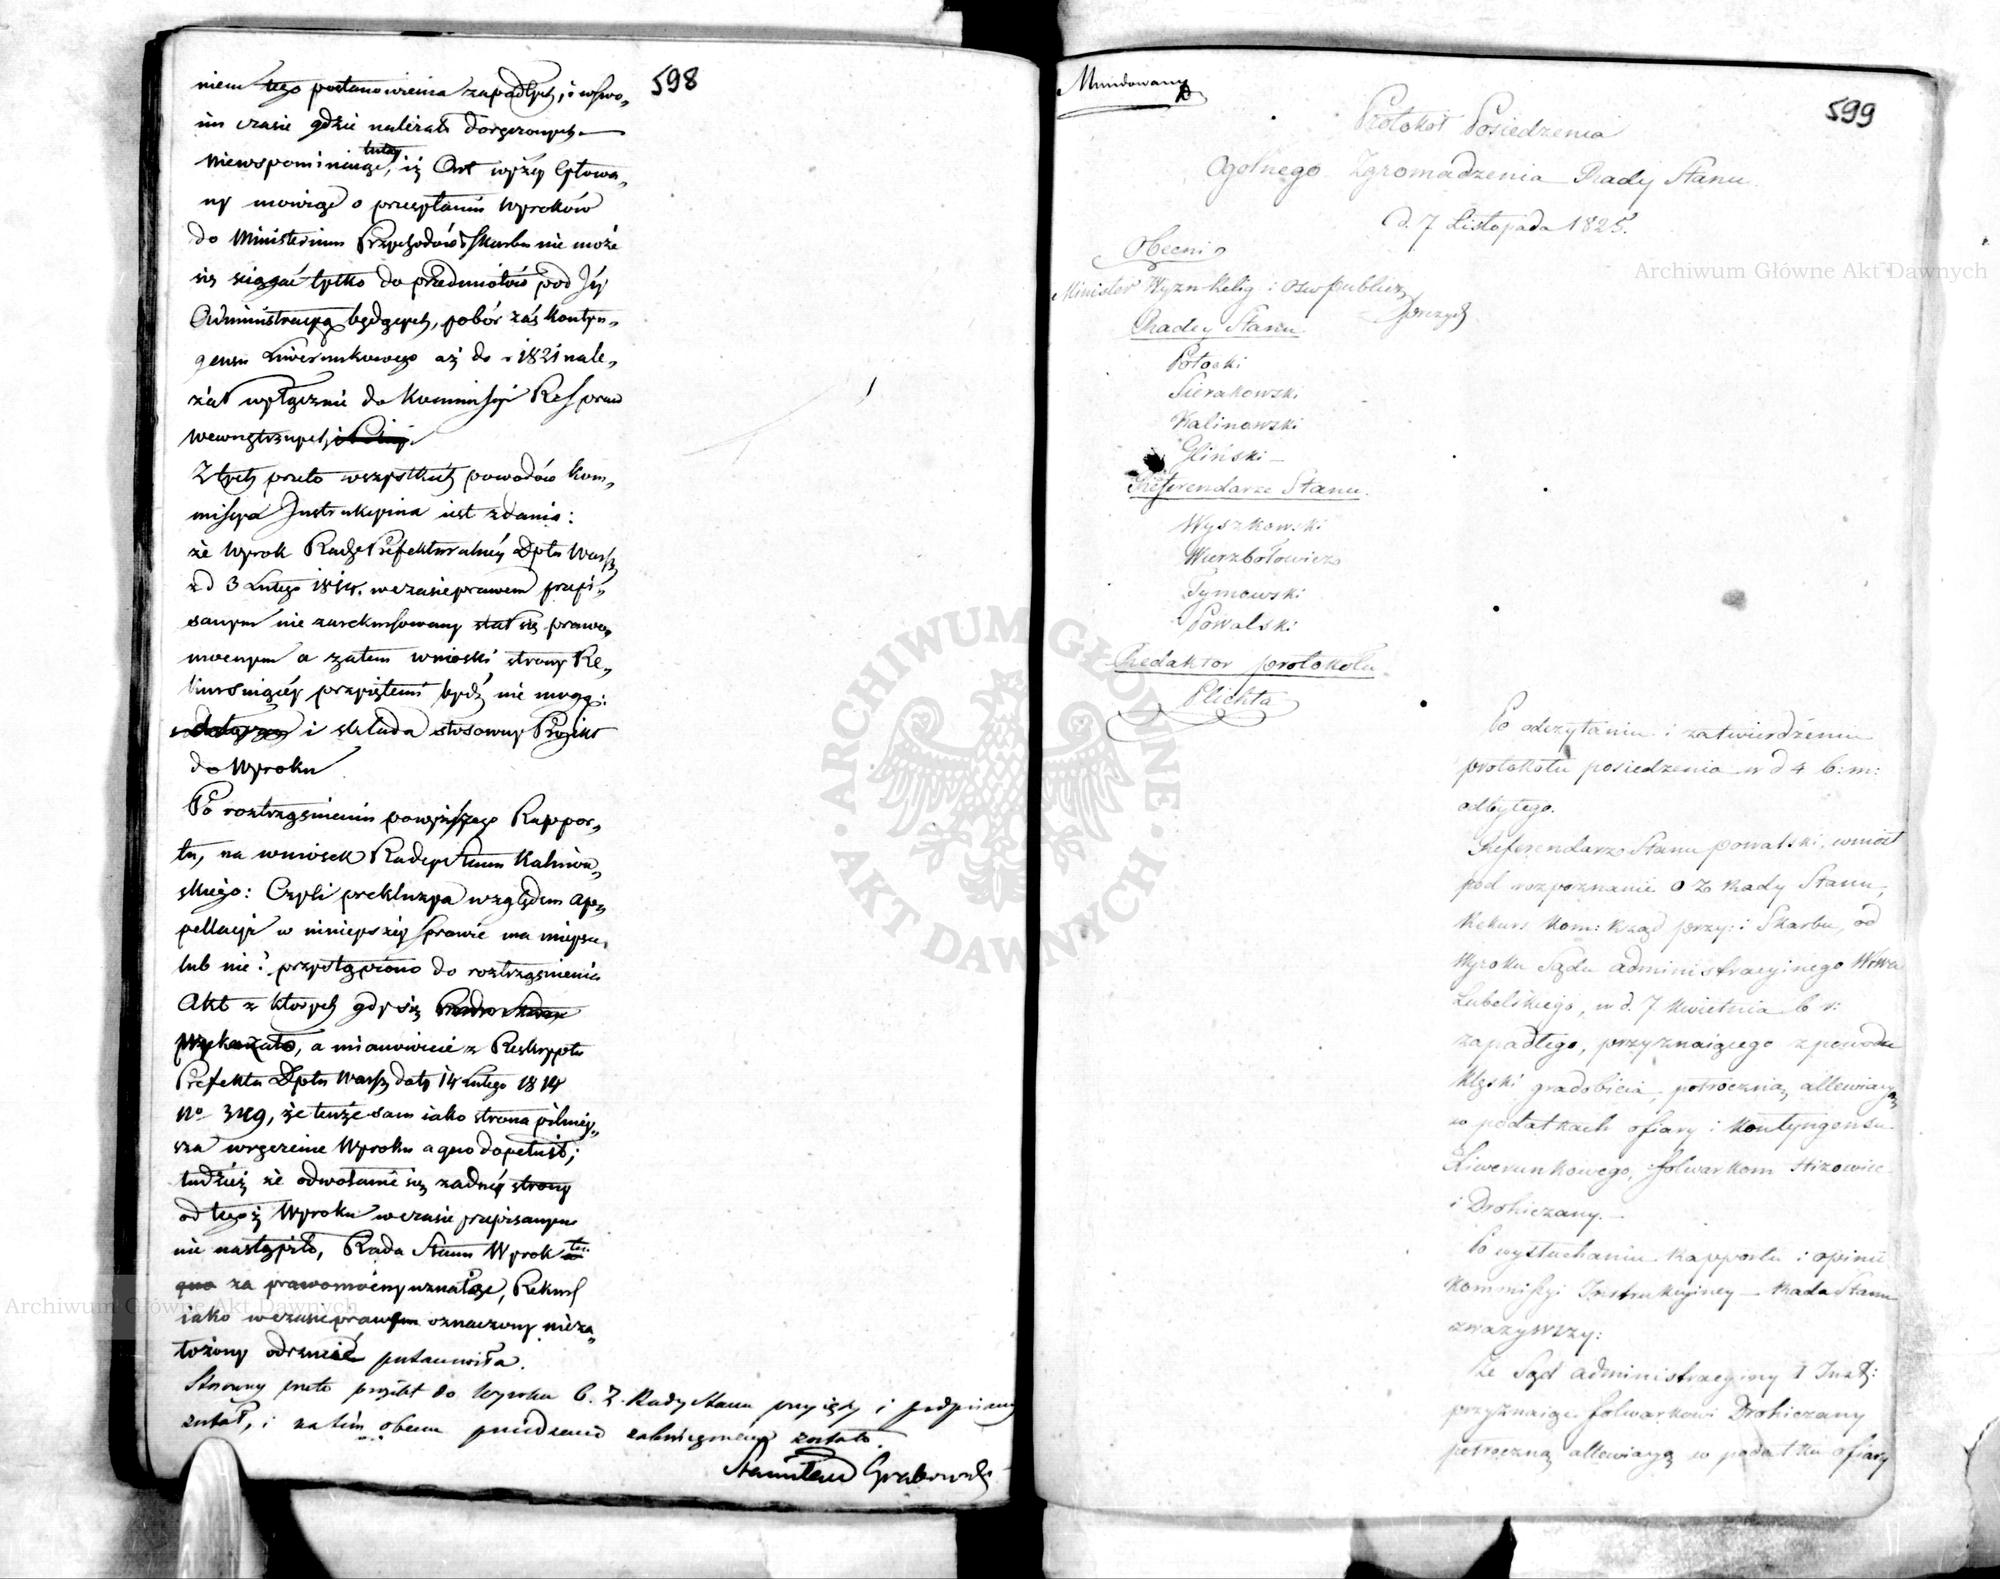 598
niem tego postanowienia zapadłych, i w swo,
im czasie gdzie należało doręczonych
niewspominaiąc tutay, iż Art wyżéy Cytowa,
ny mowiąc o przesyłaniu Wyroków
do Ministerium Przychodów i Skarbu nie może
się sciągać tylko do przedmiotów pod Jéy
Administracyą będących, pobór zaś kontyn,
gensu Liwerunkowego aż do r 1821 nale,
żał wyłącznie do Kommissyi R Spraw
wewnętrznych
Z tych przeto wszystkich powodów kom,
missya Instrukcyina iest zdania:
że Wyrok Rady Prefekturalnéy Dptu Warsz
z d 3 Lutego 1814. w czasie prawem przepi,
sanym nie zarekursowany stał się prawo,
mocnym a zatem wnioski strony Re,
kursuiącéy przyiętemi bydź nie mogą:
i składa stosowny Projekt
do Wyroku
Po roztrząśnieniu powyższego Rappor,
tu, na wniosek Radcy Stanu Kalinow,
skiego: Czyli prekluzya względem ap,
pellacyi w niniejszéy sprawie ma miejsce,
lub nie? przystąpiono do roztrząśnienia
Akt z których gdy się
wykazało, a mianowicie z Reskryptu
Prefekta Dptu Warsz daty 14 Lutego 1814
No 3119, że tenże sam iako strona pilniey,
sza wręczenie Wyroku a quo dopełnił;
tudzież że odwołanie się żadnéy strony
od tegoż Wyroku w czasie przepisanym
nie nastąpiło, Rada Stanu Wyrok ten
quo za prawomocny uznałże, Rekurs
iako w czasie prawem oznaczony nieza,
łożony odrzucić postanowiła.
Stosowny przeto projekt do Wyroku O. Z. Rady Stanu przyięty i podpisany
został, i na tém obecne posiedzenie zakończone zostało.
Stanisław Grabowski
Mundowany
599
Protokół Posiedzenia
Ogolnego Zgromadzenia Rady Stanu
d. 7 Listopada 1825.
Obecni
Minister Wyzn Relig i Ośw publicz
Radcy Stanu
Potocki
Sierakowski
Kalinowski
Gliński
Referendarze Stanu.
Wyszkowski
Wierzbołowicz
Tymowski
Powalski
Redaktor protokołu
Plichta
Po odczytaniu i zatwierdzeniu
protokołu posiedzenia w d 4 b: m:
odbytego.
Referendarz Stanu Powalski, wniósł
pod rozpoznanie O Z Rady Stanu,
Rekurs Kom: Rząd przy: i Skarbu, od
Wyroku Sądu administracyinego Wwa
Lubelskiego, w d. 7 Kwietnia b r:
zapadłego, przyznaiącego z powodu
klęski gradobicia, potroczną allewiacyą
w podatkach ofiary i kontyngensu
Liwerunkowego, folwarkom Hizowiec
i Drohiczany.
Po wysłuchaniu Rapportu i opinii
Kommissyi Instrukcyiney – Rada Stanu
zważywszy:
Że Sąd administracyiny I Inst:
przyznaiąc folwarkowi Drohiczany
potroczną allewiacyą w podatku ofiary
Archiwum Główne Akt Dawnych
Archiwum Główne Akt Dawnych
ARCHIWUM GŁÓWNE · AKT DAWNYCH ·